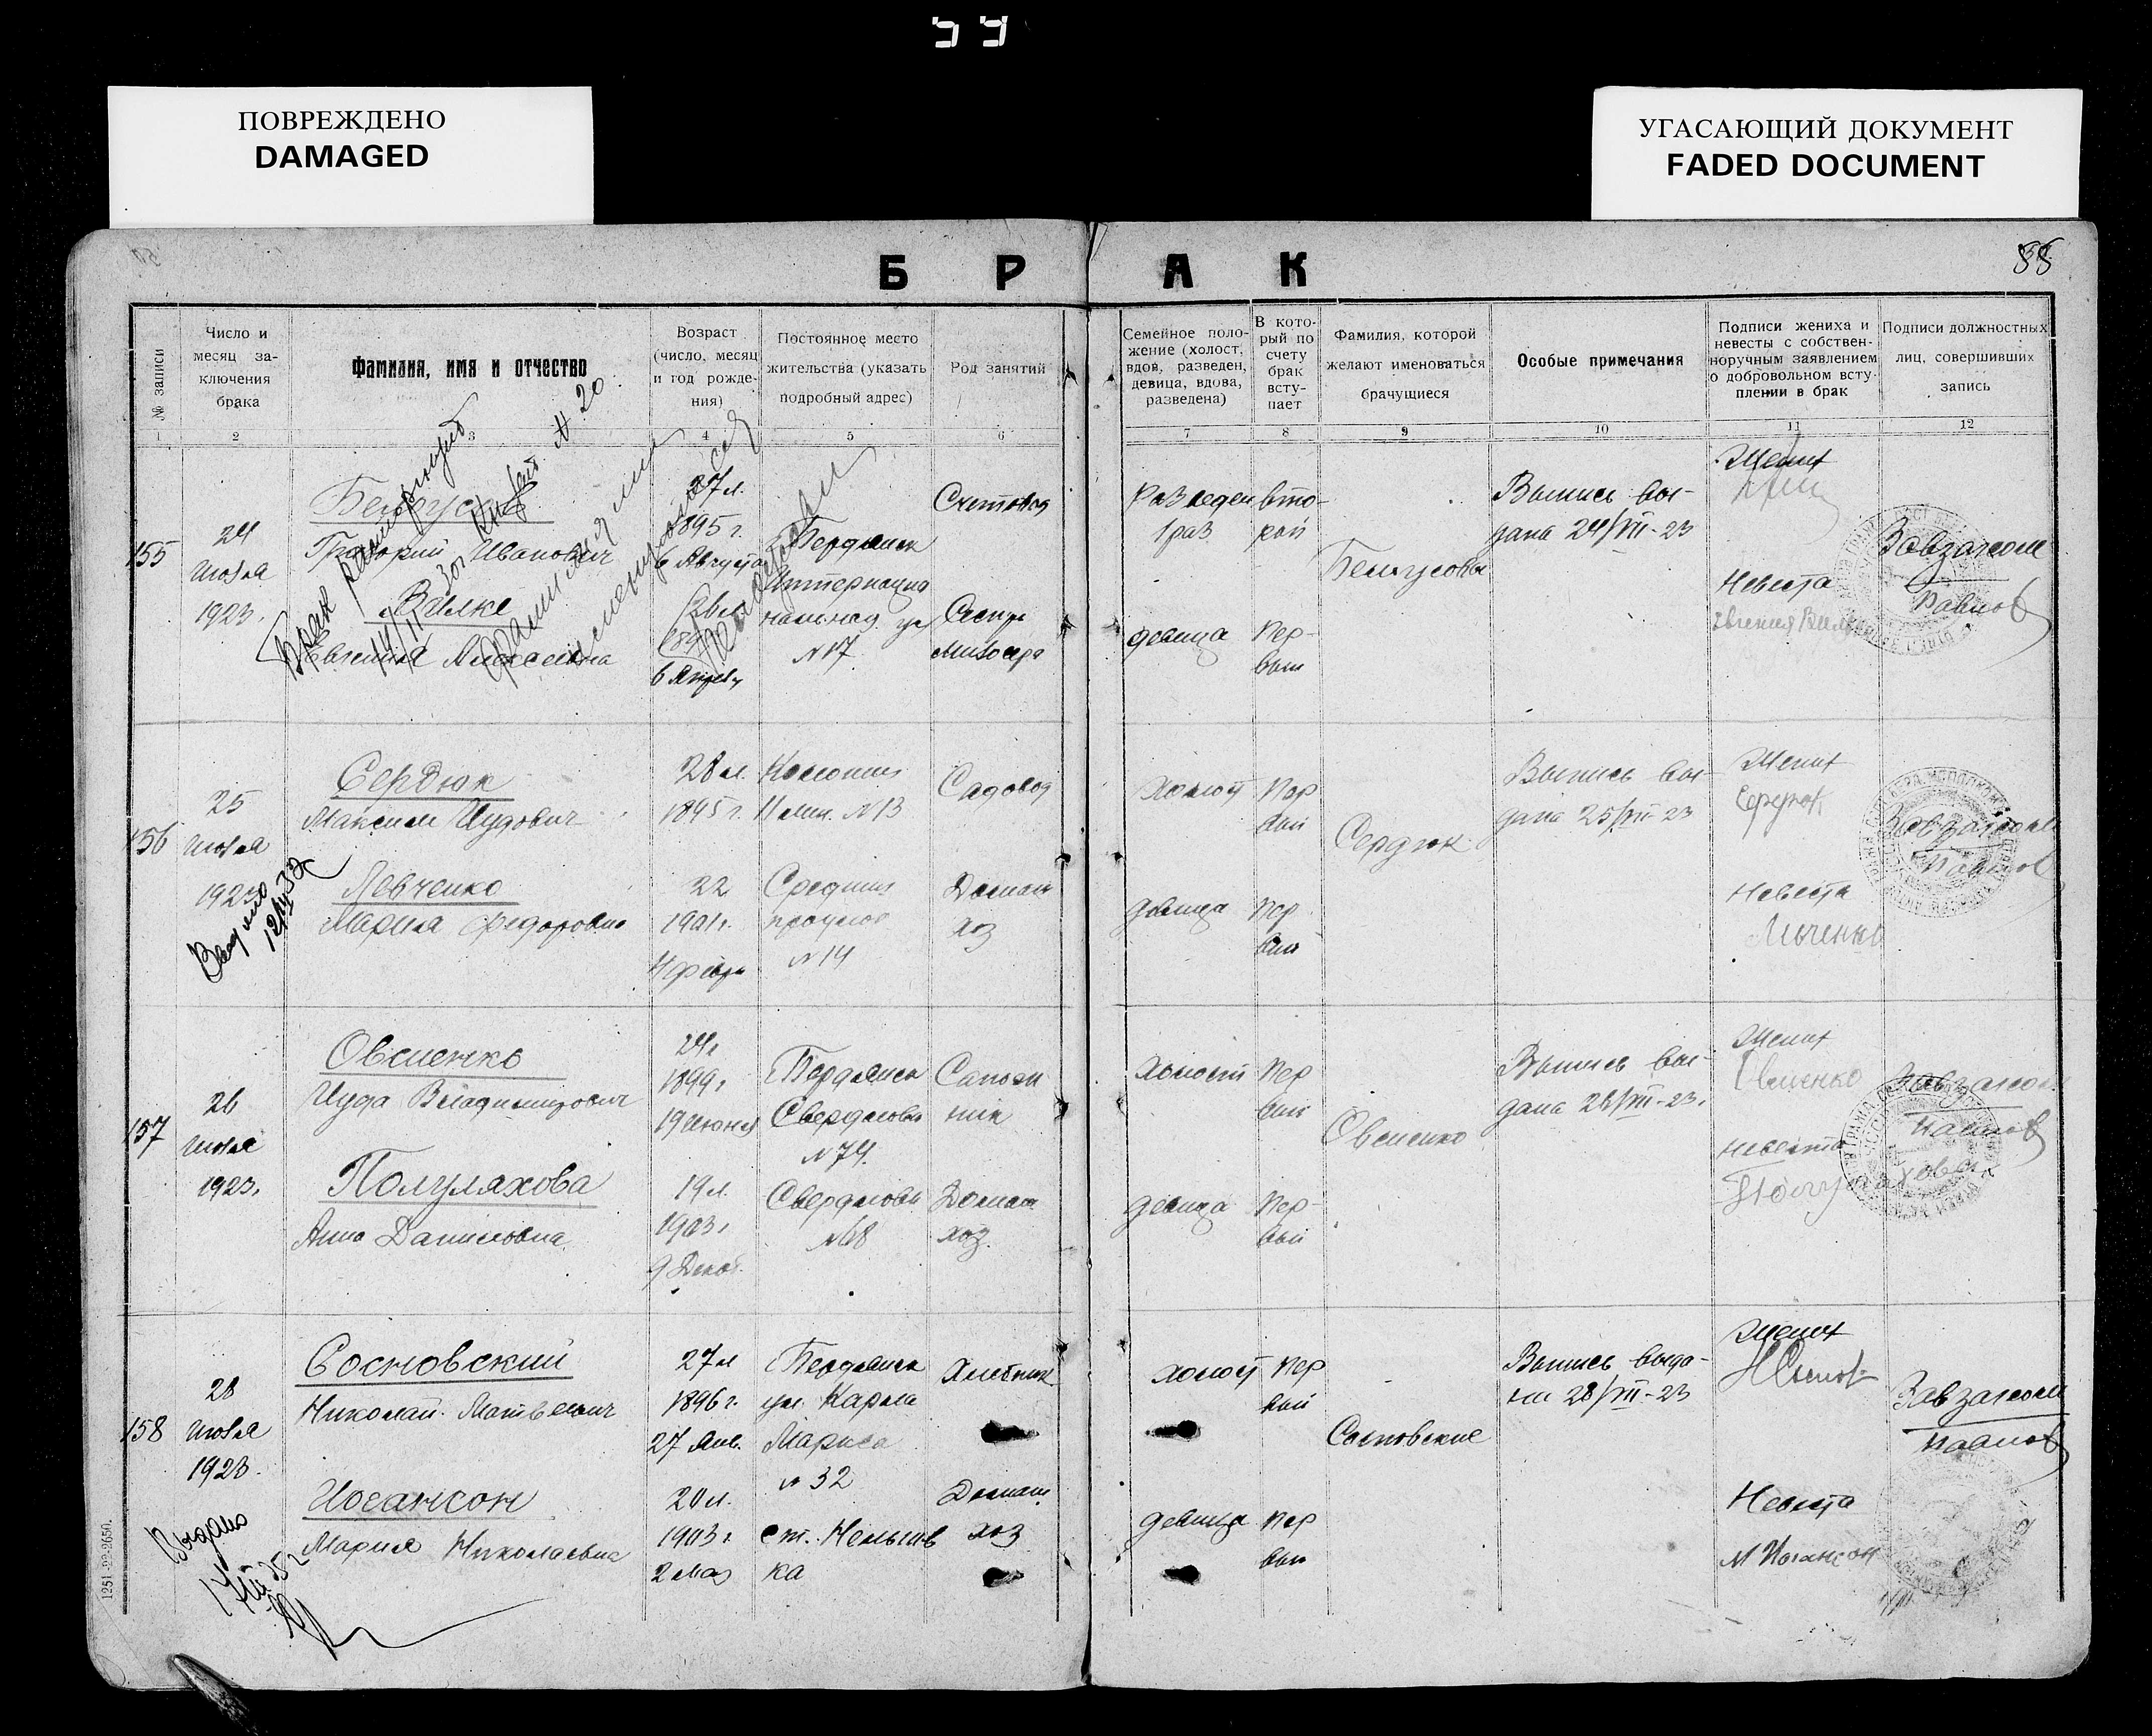 ПОВРЕЖДЕНО
DAMAGED
УГАСАЮЩИЙ ДОКУМЕНТ
FADED DOCUMENT
Б Р А К
№ записи
Число и
месяц за-
ключения
брака
Фамилия, имя и отчество
Возраст
(число, месяц
и год рожде-
ния)
Постоянное место
жительства (указать
подробный адрес)
Род занятий
Семейное поло-
жение (холост,
вдов, разведен,
девица, вдова,
разведена)
В кото-
рый по
счету
брак
всту-
пает
Фамилия, которой
желают именоваться
брачущиеся
Особые примечания
Подписи жениха и
невесты с собствен-
норучным заявлением
о добровольном всту-
плении в брак
Подписи должностных
лиц, совершивших
запись
1 2 3 4 5 6 7 8 9 10 11 12
155
24
июля
1923.
Григорий Иванович
Вилке
Евгения Алексеевна
27 л.
1895 г.
6 Августа
Бердянск
Интернацио
нальная ул
N 17
Счетовод
Сестра
Милосер
Разведен
1 раз
девица
вто-
рой
Пер-
вый
Белоусовы
Выпись вы-
дана 24/VII-23
Жених
Невеста
Евгения Вилке
Завзагсом
Павлов
156
25
июля
1923
Выдано
Сердюк
Максим Иудович
Левченко
Мария Федоровна
28 л.
1895 г.
22
1901 г.
4 февр
Колония
11 лин. N 13
Средний
проулок
N 14
Садовод
Домаш
хоз
холост
девица
Пер
вый
Пер
вый
Сердюк
Выпись вы-
дана 25/VII-23
Жених
Сердюк
Невеста
Завзагсом
Павлов
157
26
июля
1923.
Овсиенко
Иуда Владимирович
Полуляхова
Анна Даниловна
24 г
1899 г
19 июня
19 л.
1903 г
9 Декаб.
Бердянск
Свердлова
N 74.
Свердлова
N 68
Сапож
ник
Домаш
хоз.
холост
девица
Пер
вый
Пер-
вый
Овсиенко
Выпись вы-
дана 26/VII-23.
Жених
Овсиенко
Невеста
Полуляхова
Завзагсом
Павлов
158
28
июля
1923.
Выдано
Сосновский
Николай Матвеевич
Иогансон
Мария Николаевна
27 л
1896 г.
27 Янв.
20 л.
1903 г.
2 мая
Бердянск
ул. Карла
Маркса
N 32
ст. Нельгов
ка
Домаш
хоз
холост
девица
Пер
вый
Пер
вый
Сосновские
Выпись выда-
на 28/VII-23
Жених
Невеста
М Иогансон
Завзагсом
Павлов
1251-22-2650.